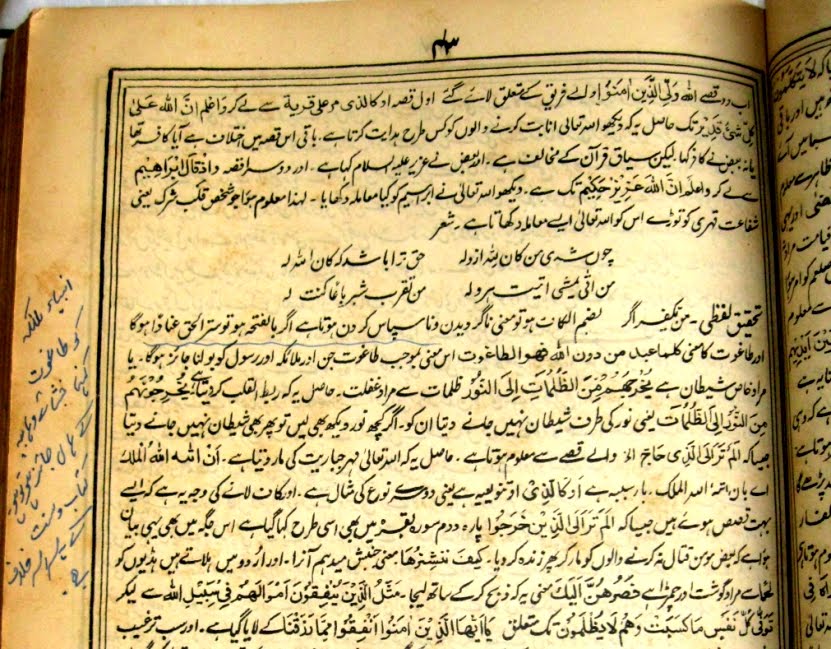 ۴۳
اب دو قصے الله ولی الذین اٰمنوا والے فریق کے متعلق لائے گئے اول قصہ او کالذی مر علی قریة سے لے کر واعلم ان الله علیٰ
کل شئ قدیر تک حاصل یہ کہ دیکھو اللہ تعالیٰ انابت کرنے والوں کو کس طرح ہدایت کرتا ہے۔ باقی اس قصہ میں اختلاف ہے آیا کافر تھا
یا نہ بعض نے کافر کہا لیکن سیاق قرآن کے مخالف ہے۔ اور بعض نے عزیر علیہ السلام کہا ہے۔ اور دوسرا قصہ واذ قال ابراهیم
سے لے کر واعلم ان الله عزیز حکیم تک ہے۔ دیکھو اللہ تعالیٰ نے ابراہیم کو کیا معاملہ دکھایا۔ لہذا معلوم ہوا جو شخص قلب شرک یعنی
شفاعت قہری کو توڑے اس کو اللہ تعالیٰ ایسے معاملہ دکھاتا ہے۔ شعر
چوں شدی من کان لله از وله حق ترا باشد که کان الله له
من اتی یمشی اتیت هروله من تقرب شبر باعا کنت له
تحقیق لفظی۔ من یکفر اگر بضم الکاف ہو تو معنی ناگرویدن و ناسپاس کردن ہوتا ہے اگر بالفتحہ ہو تو ستر الحق عنادا ہوگا
اور طاغوت کا معنی کلما عبد من دون الله فهو الطاغوت اس معنی بموجب طاغوت جن اور ملائکہ اور رسول کو بولنا جائز ہوگا۔ یا
مراد خاص شیطان ہے یخرجهم من الظلمات الی النور ظلمات سے مراد غفلت۔ حاصل یہ کہ ربط القلب کر دیتا ہے یخرجونهم
من النور الی الظلمات یعنی نور کی طرف شیطان نہیں جانے دیتا ان کو۔ اگر کچھ نور دیکھ بھی لیں تو پھر بھی شیطان نہیں جانے دیتا
جیسا کہ الم تر الی الذی حاج الخ والے قصے سے معلوم ہوتا ہے۔ حاصل یہ کہ اللہ تعالیٰ قہر جباریت کی مار دیتا ہے۔ ان اٰتٰه الله الملك
اے بان اٰتٰه الله الملك۔ با سببیہ ہے او کالذی او تنویعیہ ہے یعنی دوسرے نوع کی مثال ہے۔ اور کاف لانے کی وجہ یہ ہے کہ ایسے
بہت قصص ہوئے ہیں جیسا کہ الم تر الی الذین خرجوا پارہ دوم سورہ بقر میں بھی اسی طرح کہا گیا ہے اس جگہ میں بھی یہی بیان
ہوا ہے کہ بعض مومن قتال نہ کرنے والوں کو مار کر پھر زندہ کر دیا۔ کیف ننشزها معنی جنبش میدہم آنرا۔ اور اردو میں ہلاتے ہیں ہڈیوں کو
لحما سے مراد گوشت اور چمڑا ہے فصرهن الیك معنی یہ کہ ذبح کر کے ساتھ لیجا۔ مثل الذین ینفقون اموالهم فی سبیل الله سے لیکر
توفی کل نفس ما کسبت وهم لا یظلمون تک متعلق یا ایها الذین اٰمنوا انفقوا مما رزقنا کے لایا گیا ہے۔ اور سب ترغیب
انبیاء ملائکہ
کو طاغوت
کہنا
کے ہاں جائز
کتاب و سنت
کے خلاف
ہے